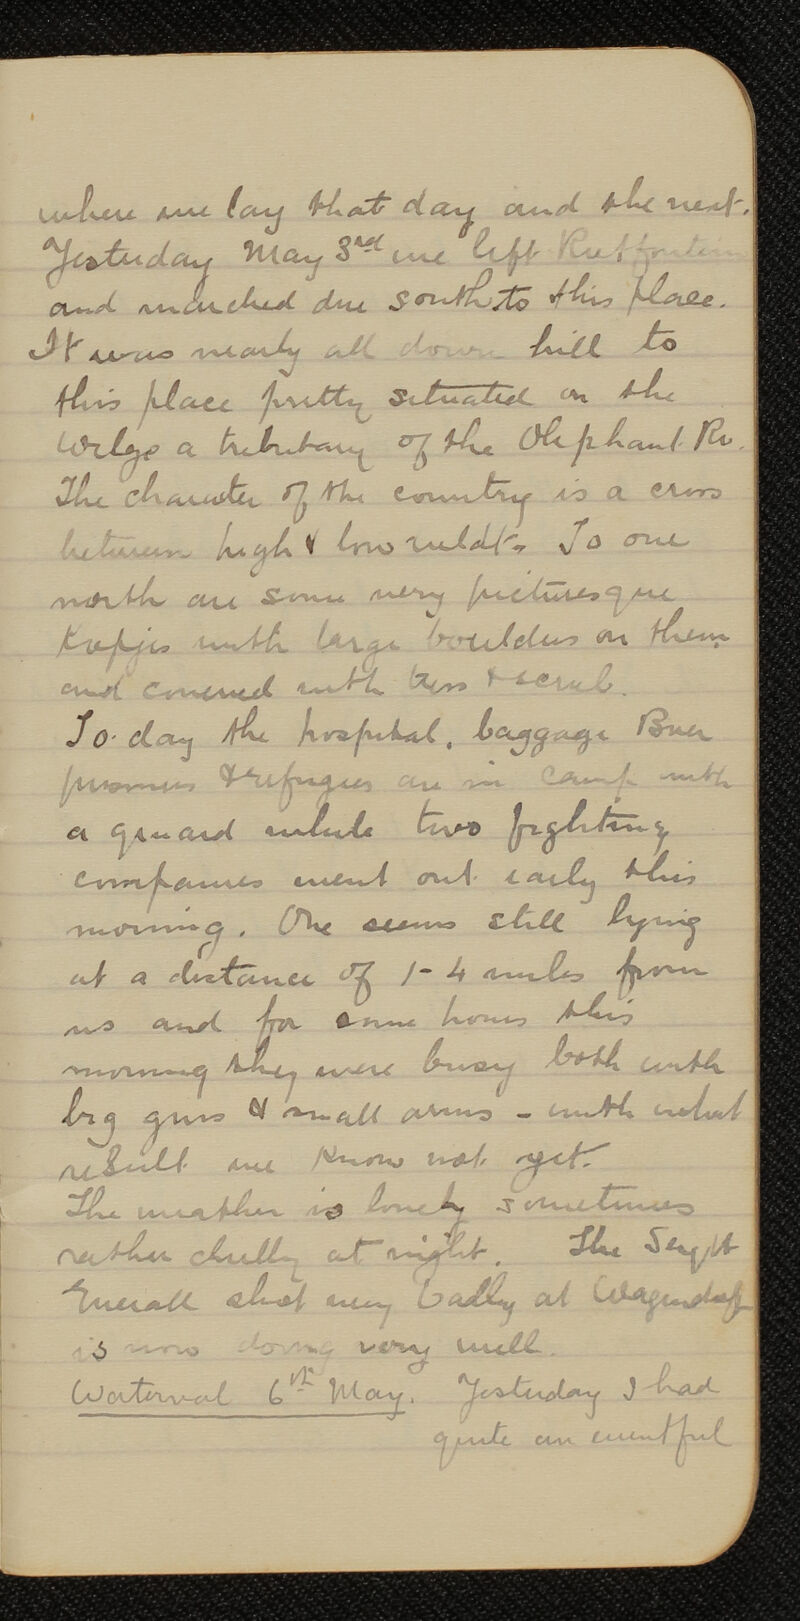 where we lay that day and the next.
Yesterday May 3rd we left Rietfontein
and marched due south to this place.
It was nearly all down hill to
this place pretty situated on the
Wilge a tributary of the Olephant Rv.
The character of the country is a cross
between high & low veldt. To our
north are some very picturesque
Kopjes with large boulders on them
and covered with trees & scrub.
To-day the hospital, baggage Boer
prisoners & refugees are in camp with
a guard while two fighting
companies went out early this
morning. One seems still lying
at a distance of 1-4 miles from
us and for some hours this
morning they were busy both with
big guns & small arms - with what
result we know not yet.
The weather is lovely sometimes
rather chilly at night. The Sergt
shot very badly at
is now doing very well.
Waterval 6th May. Yesterday I had
quite an eventful